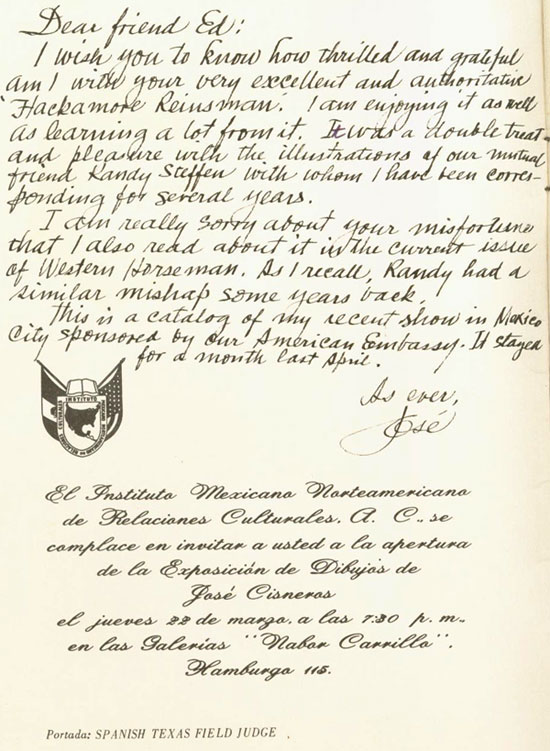 Dear friend Ed:
I wish you to know how thrilled and grateful
am I with your very excellent and authoritative
"Hackamore Reinsman. I am enjoying it as well
as learning a lot from it. It was a double treat
and pleasure with the illustrations of our mutual
friend Randy Steffen with whom I have been corres-
ponding for several years.
I am really sorry about your misfortune
that I also read about it in the current issue
of Western Horseman. As I recall, Randy had a
similar mishap some years back.
This is a catalog of my recent show in Mexico
City sponsored by our American Embassy. It stayed
for a month last April.
As ever,
José
El Instituto Mexicano Norteamericano
de Relaciones Culturales, A. C., se
complace en invitar a usted a la apertura
de la Exposición de Dibujos de
José Cisneros
el jueves 22 de marzo, a las 7:30 p. m.,
en las Galerías "Nabor Carrillo".
Hamburgo 115.
Portada: SPANISH TEXAS FIELD JUDGE